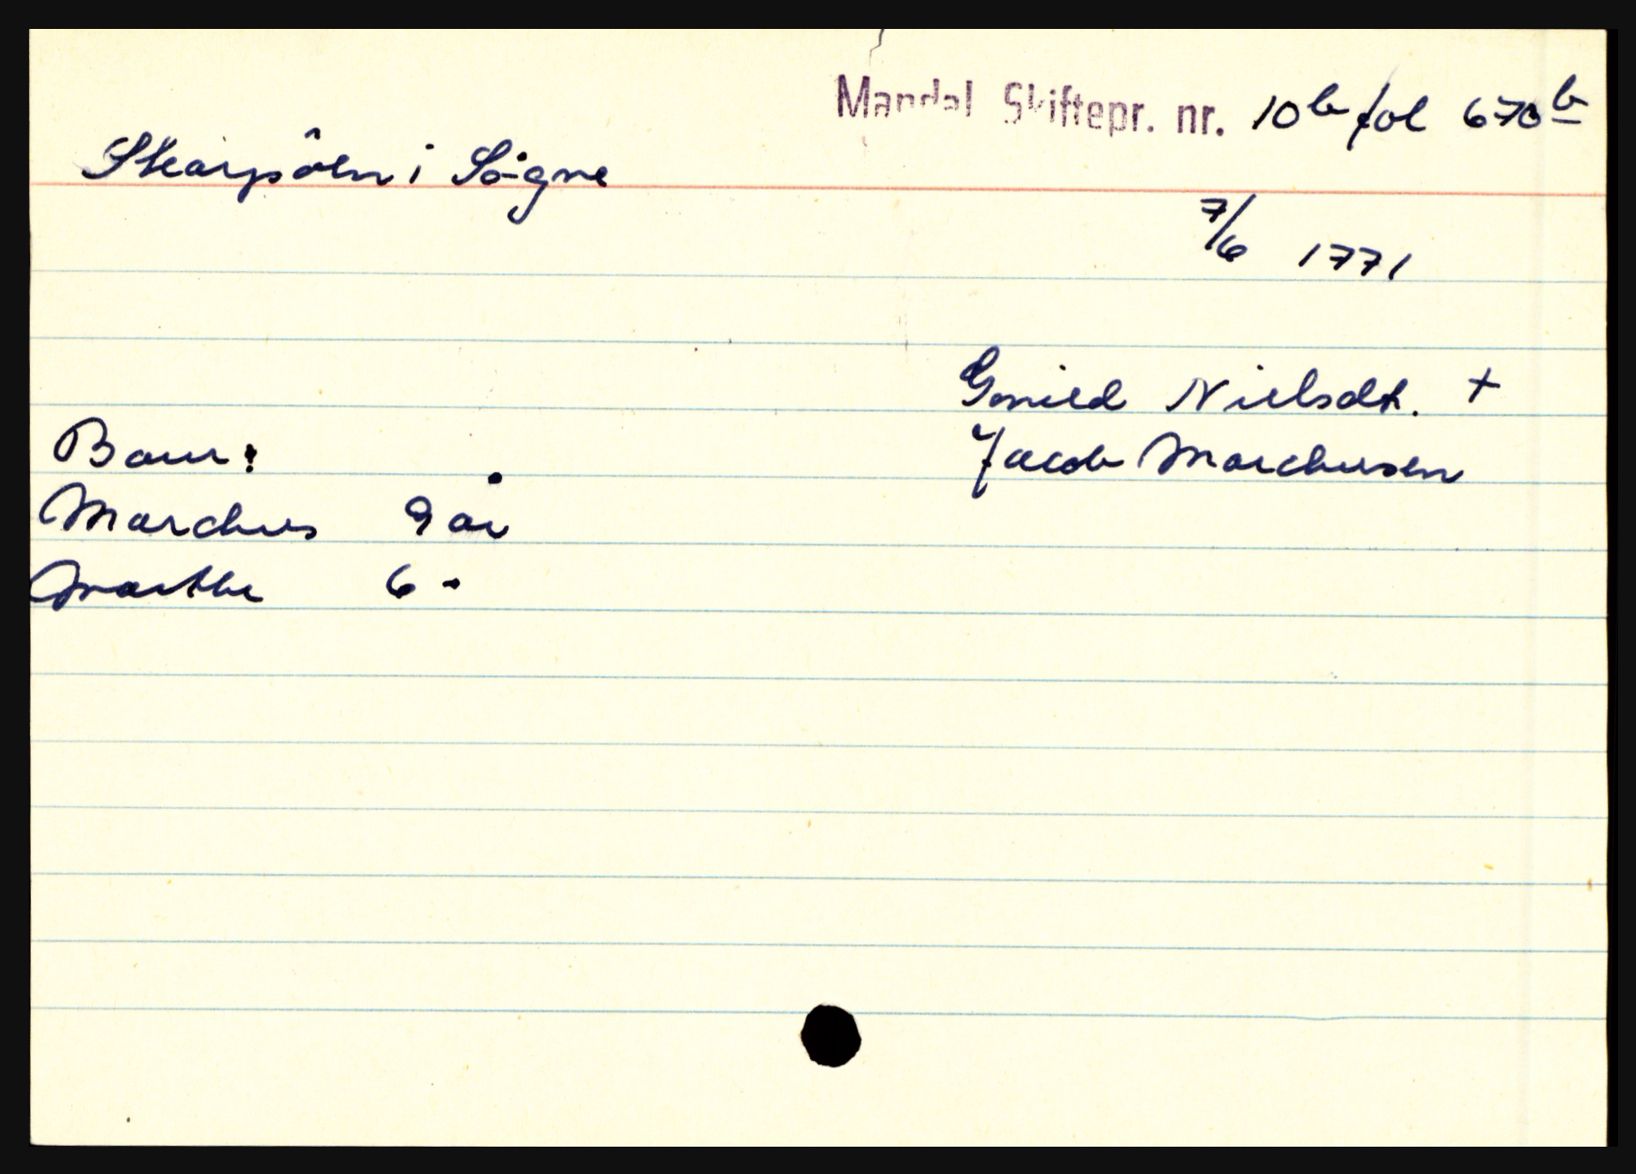 Mandal Skiftepr. nr. 10b fol 670b
Skarpölen i Sögne
7/6 1771
Gonild Nielsdt. +
Jacob Marchusen
Barn:
Marchus 9 år
Marthe 6 -